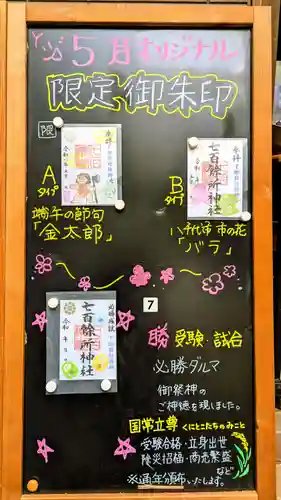 5月オリジナル
限定御朱印
限
A
タイプ
端午の節句
「金太郎」
七百餘所神社
B
タイプ
八千代市の花
「バラ」
七百餘所神社
7
勝 受験・試合
必勝ダルマ
御祭神の
ご神徳を現しました。
国常立尊 くにとこたちのみこと
受験合格・立身出世
除災招福・商売繁盛
など
※通年頒布いたします。